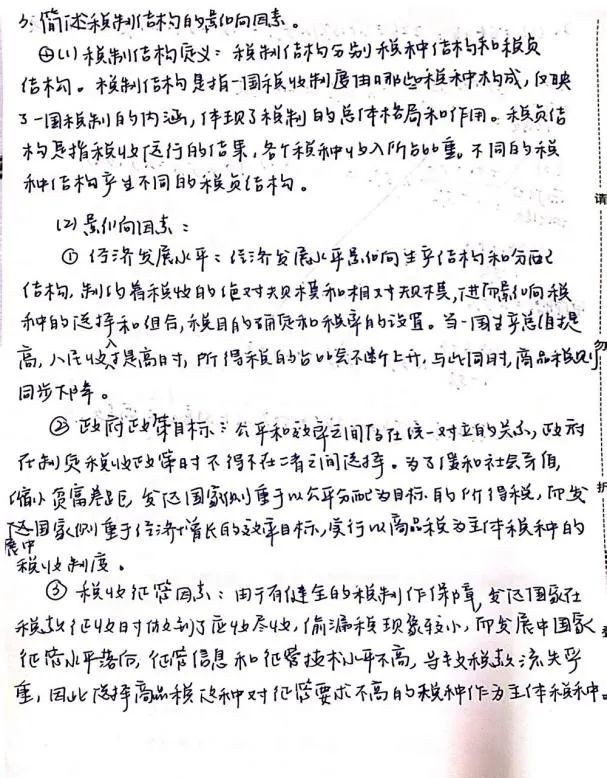 3. 简述税制结构的影响因素。
(1) 税制结构定义：税制结构分别税种结构和税负
结构。税制结构是指一国税收制度由哪些税种构成，反映
了一国税制的内涵，体现了税制的总体格局和作用。税负结
构是指税收运行的结果，各个税种收入所占比重。不同的税
种结构产生不同的税负结构。
(2) 影响因素：
① 经济发展水平：经济发展水平影响生产结构和分配
结构，制约着税收的绝对规模和相对规模，进而影响税
种的选择和组合，税目的确定和税率的设置。当一国生产总值提
高，人民收入提高时，所得税的占比会不断上升，与此同时，商品税则
同步下降。
② 政府政策目标：公平和效率之间存在统一对立的关系，政府
在制定税收政策时不得不在二者之间选择。为了缓和社会矛盾，
缩小贫富差距，发达国家侧重于以公平分配为目标的所得税，而发
展中国家侧重于经济增长的效率目标，实行以商品税为主体税种的
税收制度。
③ 税收征管因素：由于有健全的税制作保障，发达国家在
税款征收时做到了应收尽收，偷漏税现象较小，而发展中国家
征管水平落后，征管信息和征管技术水平不高，导致税款流失严
重，因此选择商品税这种对征管要求不高的税种作为主体税种。
请
勿
折